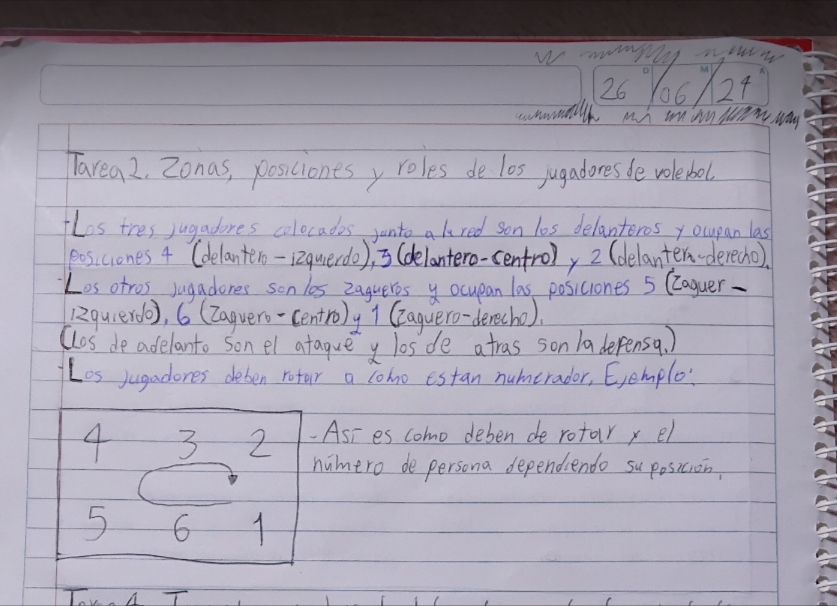 26/06/24
Tarea 2. Zonas, posiciones y roles de los jugadores de voleibol.
-Los tres jugadores colocados junto a la red son los delanteros y ocupan las
posiciones 4 (delantero-izquierdo), 3 (delantero-centro) y 2 (delantero-derecho).
-Los otros jugadores son los zagueros y ocupan las posiciones 5 (Zaguer-
izquierdo), 6 (Zaguero-centro) y 1 (Zaguero-derecho).
(Los de adelanto son el ataque y los de atras son la defensa.)
-Los jugadores deben rotar a como estan numerador. Ejemplo:
4 3 2
5 6 1
-Así es como deben de rotar y el
número de persona dependiendo su posición.